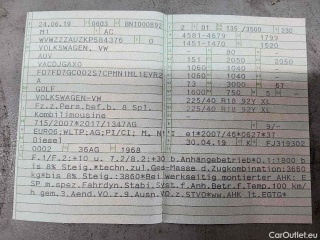 24.06.19 0603 BNI000892
M1 AC
WVWZZZAUZKP584376 0
VOLKSWAGEN, VW
AUV
VACDJGAX0
FD7FD7GC002S7CPMN1ML1EVR2
A
GOLF
VOLKSWAGEN-VW
Fz.z.Pers.bef.b. 8 Spl.
Kombilimousine
715/2007*2017/1347AG
EURO6;WLTP;AG;PI/CI; M, N1 I
Diesel
0002 36AG 1968
2 01 139 /3500 230
4581-4679 1799
1451-1470 1520
80
151 2050 2050
1060 1060
1040
73 3000 67
1600 750 5
225/40 R18 92Y XL
225/40 R18 92Y XL
9/-
e1*2007/46*0627*31
30.04.19 K FJ319302
F.1/F.2:+10 u. 7.2/8.2:+30 b.Anhängebetrieb*O.1:1800 b
is 8% Steig.*techn.zul.Ges-Masse d.Zugkombination:3660
kg*bis 8% Steig.:3860*Bei werkseitig montierter AHK: E
SP m.spez.Fahrdyn.Stabi.Syst.f.Anh.Betr.F.Temp.100 km/
h gem.3.Aend.VO.z.9.Ausn.VO.z.STVO*ww.AHK lt.EGTG*